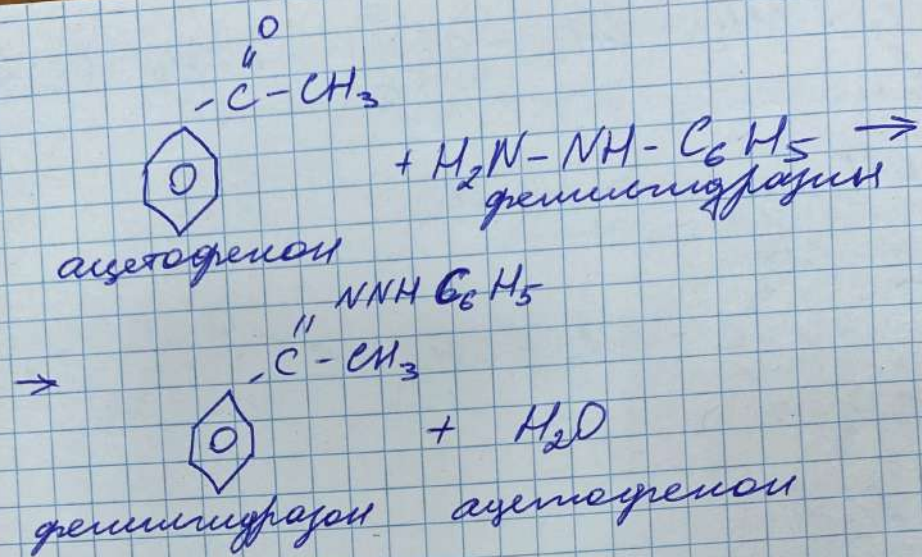 O
"
- C - CH₃
+ H₂N - NH - C₆H₅ →
фенилгидразин
ацетофенон
NNHC₆H₅
"
→ - C - CH₃
+ H₂O
фенилгидразон ацетофенон